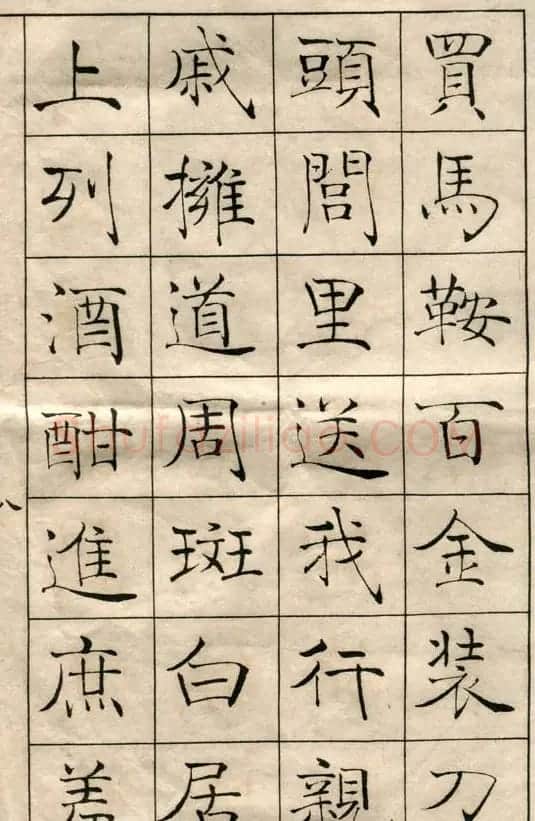 買馬鞍百金裝刀
頭閭里送我行親
戚擁道周斑白居
上列酒酣進庶羞
shufaziliao.COM